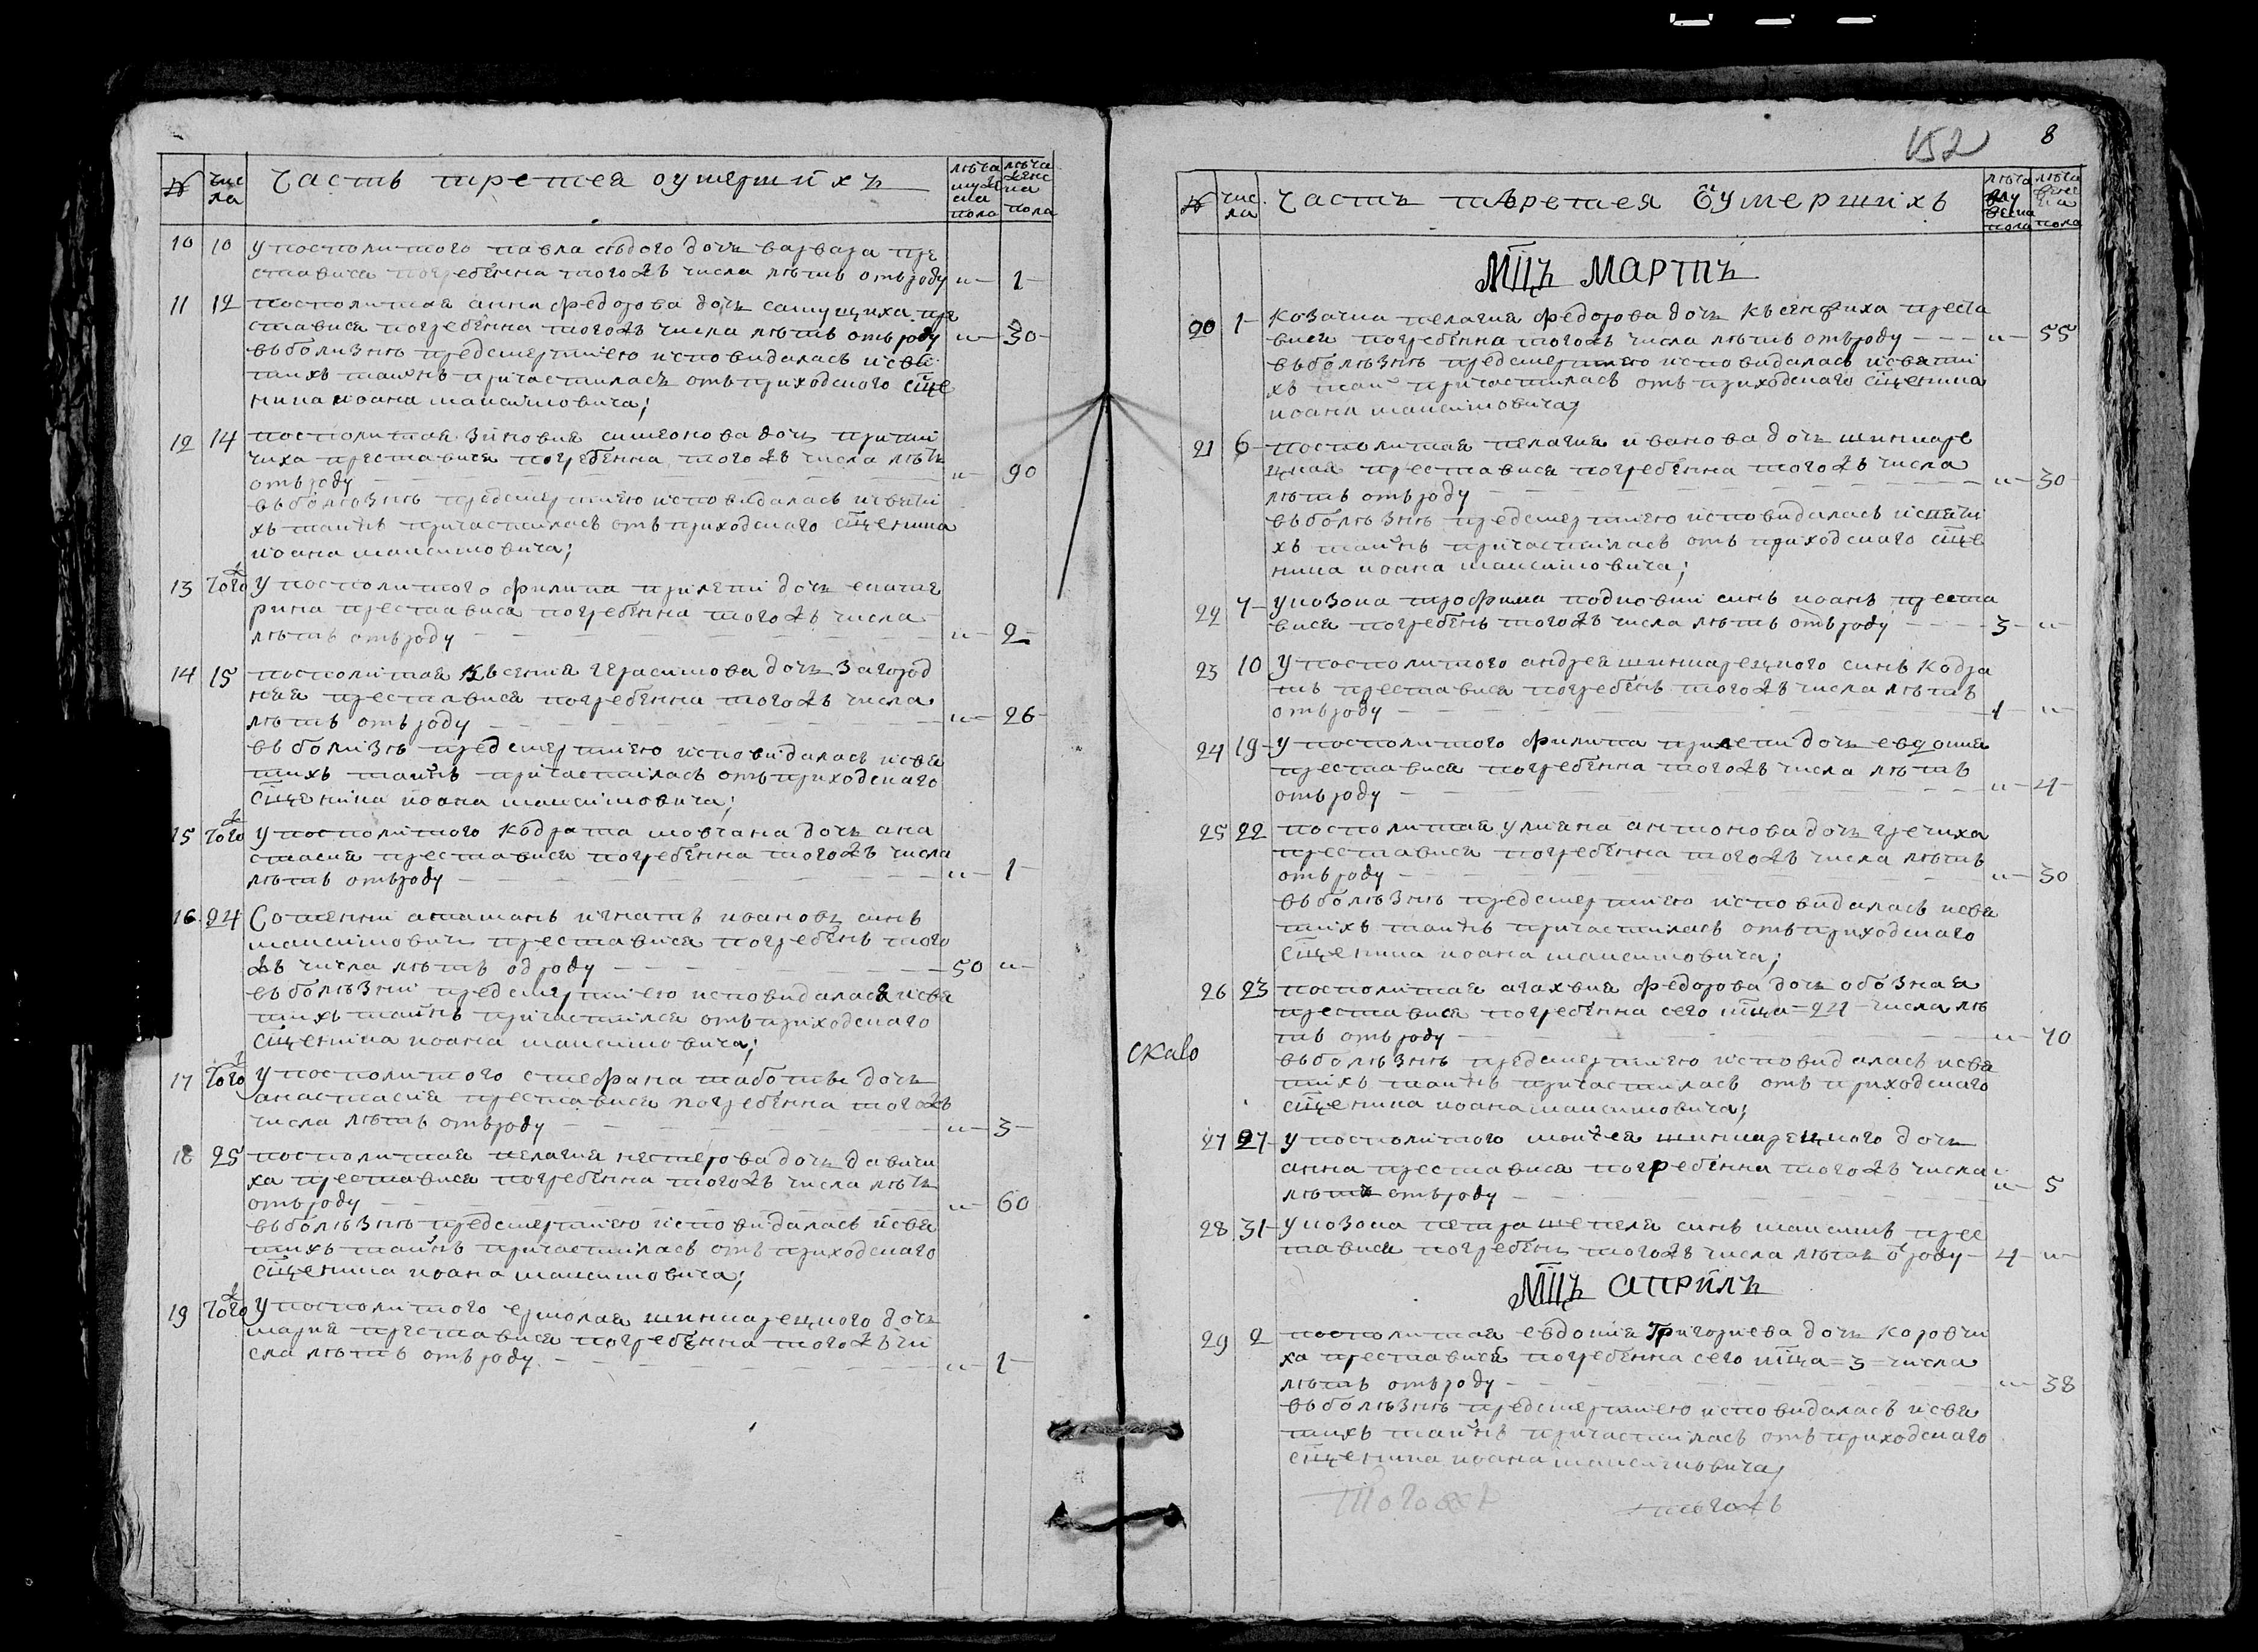 № чис ла Часть третея оумершихъ лѣта мужеска пола лѣта женска пола
10 10 у посполитого павла сѣдого дочъ варвара пре
ставися погребѣнна тогожъ числа лѣтъ отъроду „ 1
11 12 посполитая анна федорова дочъ
ставися погребѣнна тогожъ числа лѣтъ отъроду „ 30
въболизнѣ предсмертнею исповидалась исвя
тихъ таинъ причастилась отъприходского сще
ника иоана максимовича;
12 14 посполитая зѣновия симеонова дочъ
чиха преставися погребѣнна тогожъ числа лѣтъ
отъроду „ 90
въболѣзнѣ предсмертнею исповидалась исвяти
хъ таинъ причастилась отъприходского сщеника
иоана максимовича;
13 тогож у посполитого филипа прилепи дочъ екатае
рина преставися погребѣнна тогожъ числа
лѣтъ отъроду „ 2
14 15 посполитая Късения герасимова дочъ Загород
няя преставися погребѣнна тогожъ числа
лѣтъ отъроду „ 26
въболизнѣ предсмертнею исповидалась исвя
тихъ таинъ причастилась отъприходского
сщеника иоана максимовича;
15 тогож у посполитого кодрата мовчана дочъ ана
стасия преставися погребѣнна тогожъ числа
лѣтъ отъроду „ 1
16 24 Сотенни атаманъ игнатъ ивановъ синъ
максимовичъ преставися погребѣнъ того
жъ числа лѣтъ одроду 50 „
въболѣзни предсмертнею исповидалася исвя
тихъ таинъ причастился отъприходского
сщеника иоана максимовича;
17 тогож у посполитого стефана шаботы дочъ
анастасия преставися погребѣнна тогожъ
числа лѣтъ отъроду „ 3
18 25 посполитая пелагия нестерова дочъ давичи
ха преставися погребѣнна тогожъ числа лѣтъ
отъроду „ 60
въболѣзнѣ предсмертнею исповидалась исвя
тихъ таинъ причастилась отъ приходского
сщеника иоана максимовича;
19 тогож у посполитого ермолая шинкарецкого дочъ
мария преставися погребѣнна тогожъ чи
сла лѣтъ отъроду „ 1
152 8
№ чис ла Часть тѣретея оумершихъ лѣта мужеска пола лѣта женска пола
мцъ мартъ
20 1 козачка пелагия федорова дочъ преста
вися погребѣнна тогожъ числа лѣтъ отъроду „ 55
въболѣзнѣ предсмертнею исповидалась исвяти
хъ таи причастилась отъ приходского сщеника
иоана максимовича;
21 6 посполитая пелагия иванова дочъ шинкаре
цкая преставися погребѣнна тогожъ числа
лѣтъ отъроду „ 30
въболѣзнѣ предсмертнею исповидалась исвяти
хъ таинъ причастилась отъ приходского сще
ника иоана максимовича;
22 7 у козака трофима синъ иоанъ преста
вися погребѣнъ тогожъ числа лѣтъ отъроду 3 „
23 10 у посполитого андрея шинкарецкого синъ кодра
тъ преставися погребѣнъ тогожъ числа лѣтъ
отъроду 1 „
24 19 у посполитого филипа прилепи дочъ евдокия
преставися погребѣнна тогожъ числа лѣтъ
отъроду „ 4
25 22 посполитая улияна антонова дочъ гречиха
преставися погребѣнна тогожъ числа лѣтъ
отъроду „ 30
въболѣзнѣ предсмертнею исповидалась исвя
тихъ таинъ причастилась отъприходского
сщеника иоана максимовича;
26 23 посполитая агахвия федорова дочъ обозная
преставися погребѣнна сего мца = 24 = числа лѣ
тъ отъроду „ 70
въболѣзнѣ предсмертнею исповидалась исвя
тихъ таинъ причастилась отъ приходского
сщеника иоана максимовича;
27 27 у посполитого моисея шинкарецкого дочъ
анна преставися погребѣнна тогожъ числа
лѣтъ отъроду „ 5
28 31 у козака петра шепеля синъ максимъ прес
тависи погребѣнъ тогожъ числа лѣтъ ороду 4 „
мцъ априлъ
29 2 посполитая евдокия Григориева дочъ коровчи
ха преставися погребѣнна сего мца = 3 = числа
лѣтъ отъроду „ 38
въболѣзнѣ предсмертнею исповидалась исвя
тихъ таинъ причастилась отъприходского
сщеника иоана максимовича;
тогожъ тогожъ